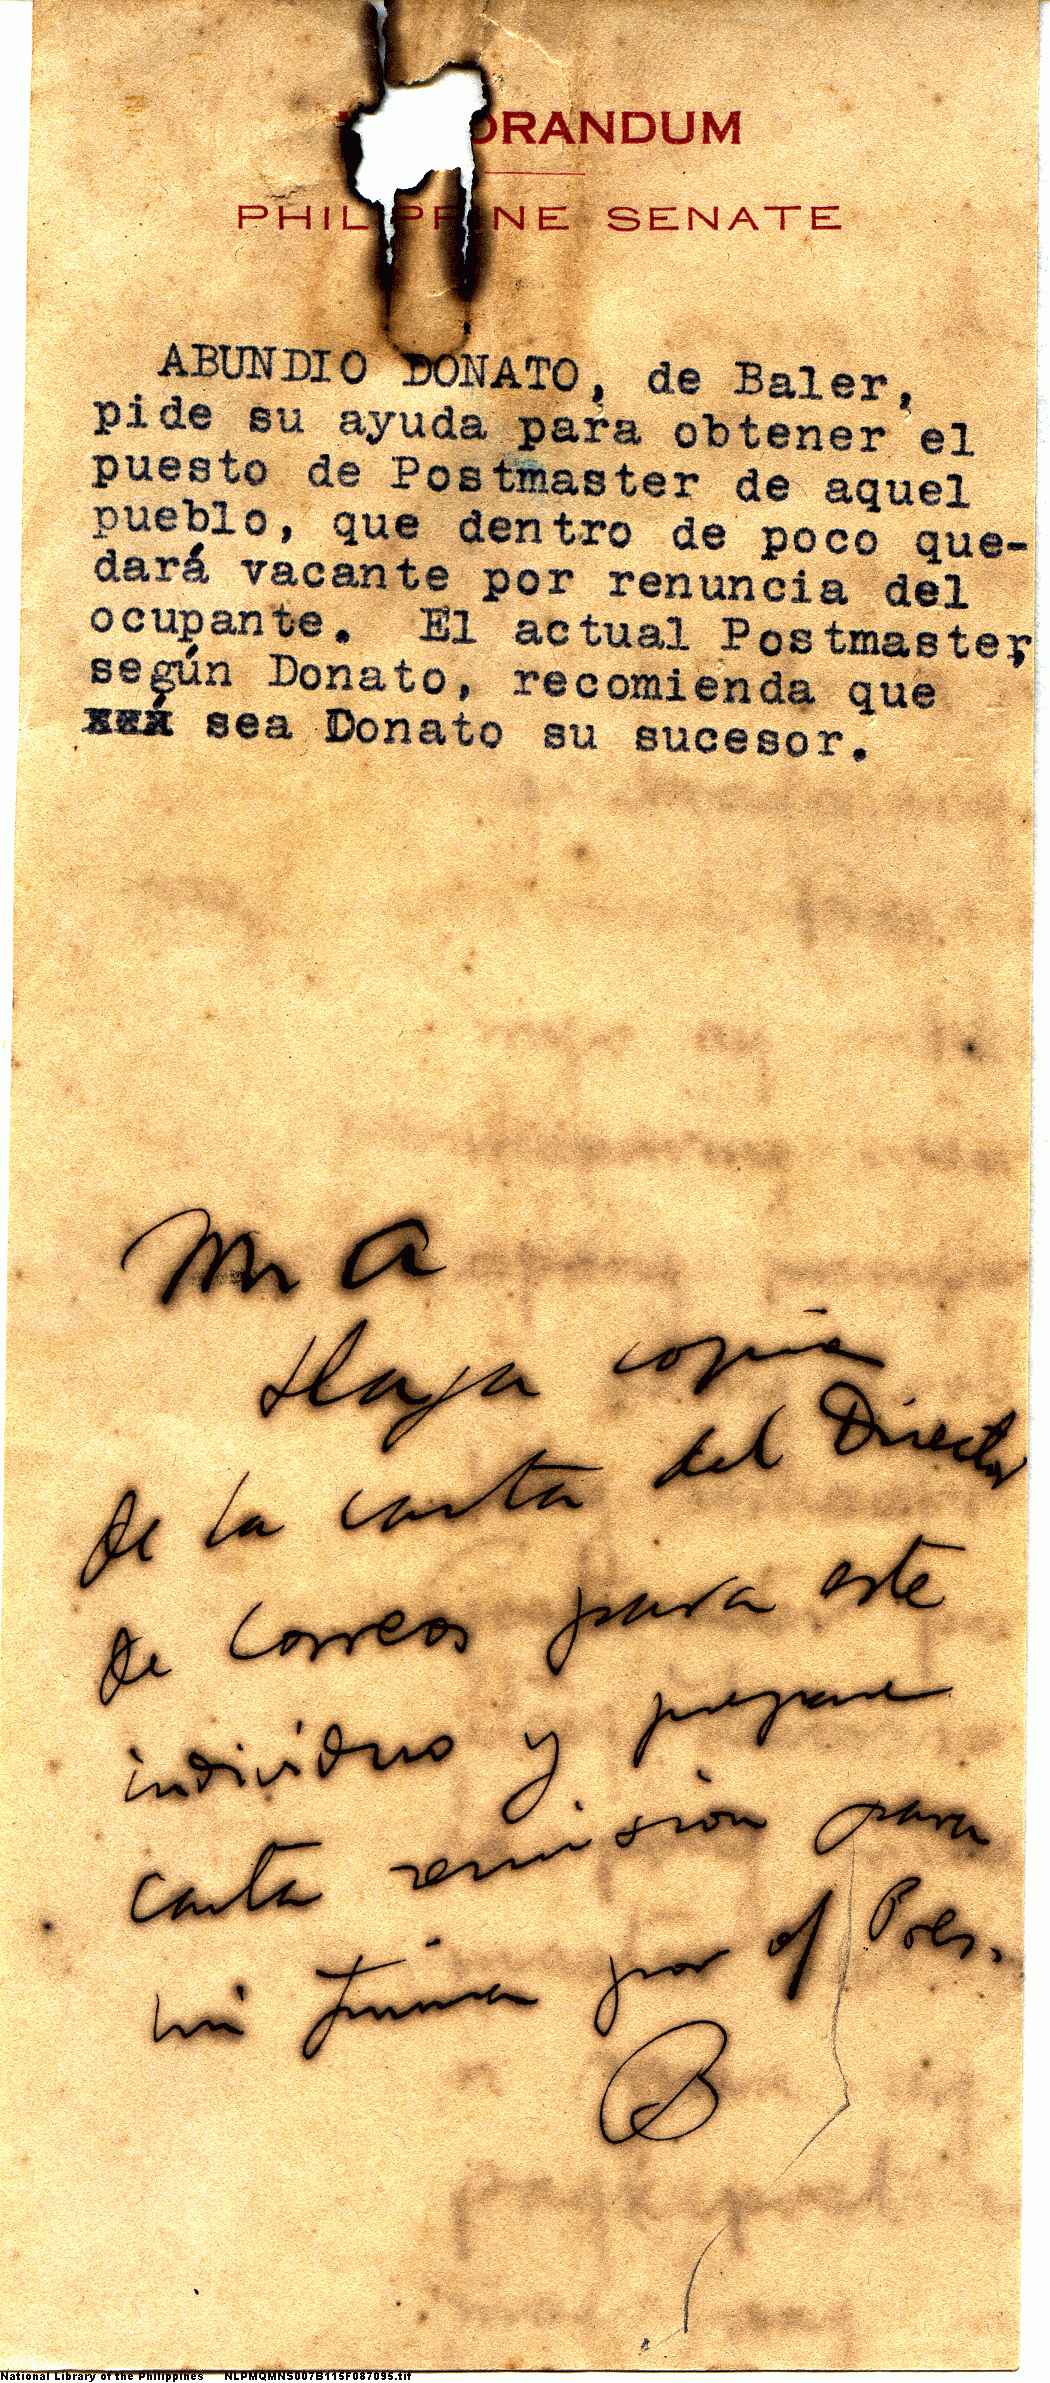 MEMORANDUM
PHILIPPINE SENATE
ABUNDIO DONATO, de Baler,
pide su ayuda para obtener el
puesto de Postmaster de aquel
pueblo, que dentro de poco que-
dará vacante por renuncia del
ocupante. El actual Postmaster,
según Donato, recomienda que
sea Donato su sucesor.
Mr A
Haga copia
de la carta del Director
de Correos para este
individuo y prepare
carta remisión para
mi firma por el Pres.
B
National Library of the Philippines NLPMQMNS007B115F087095.tif